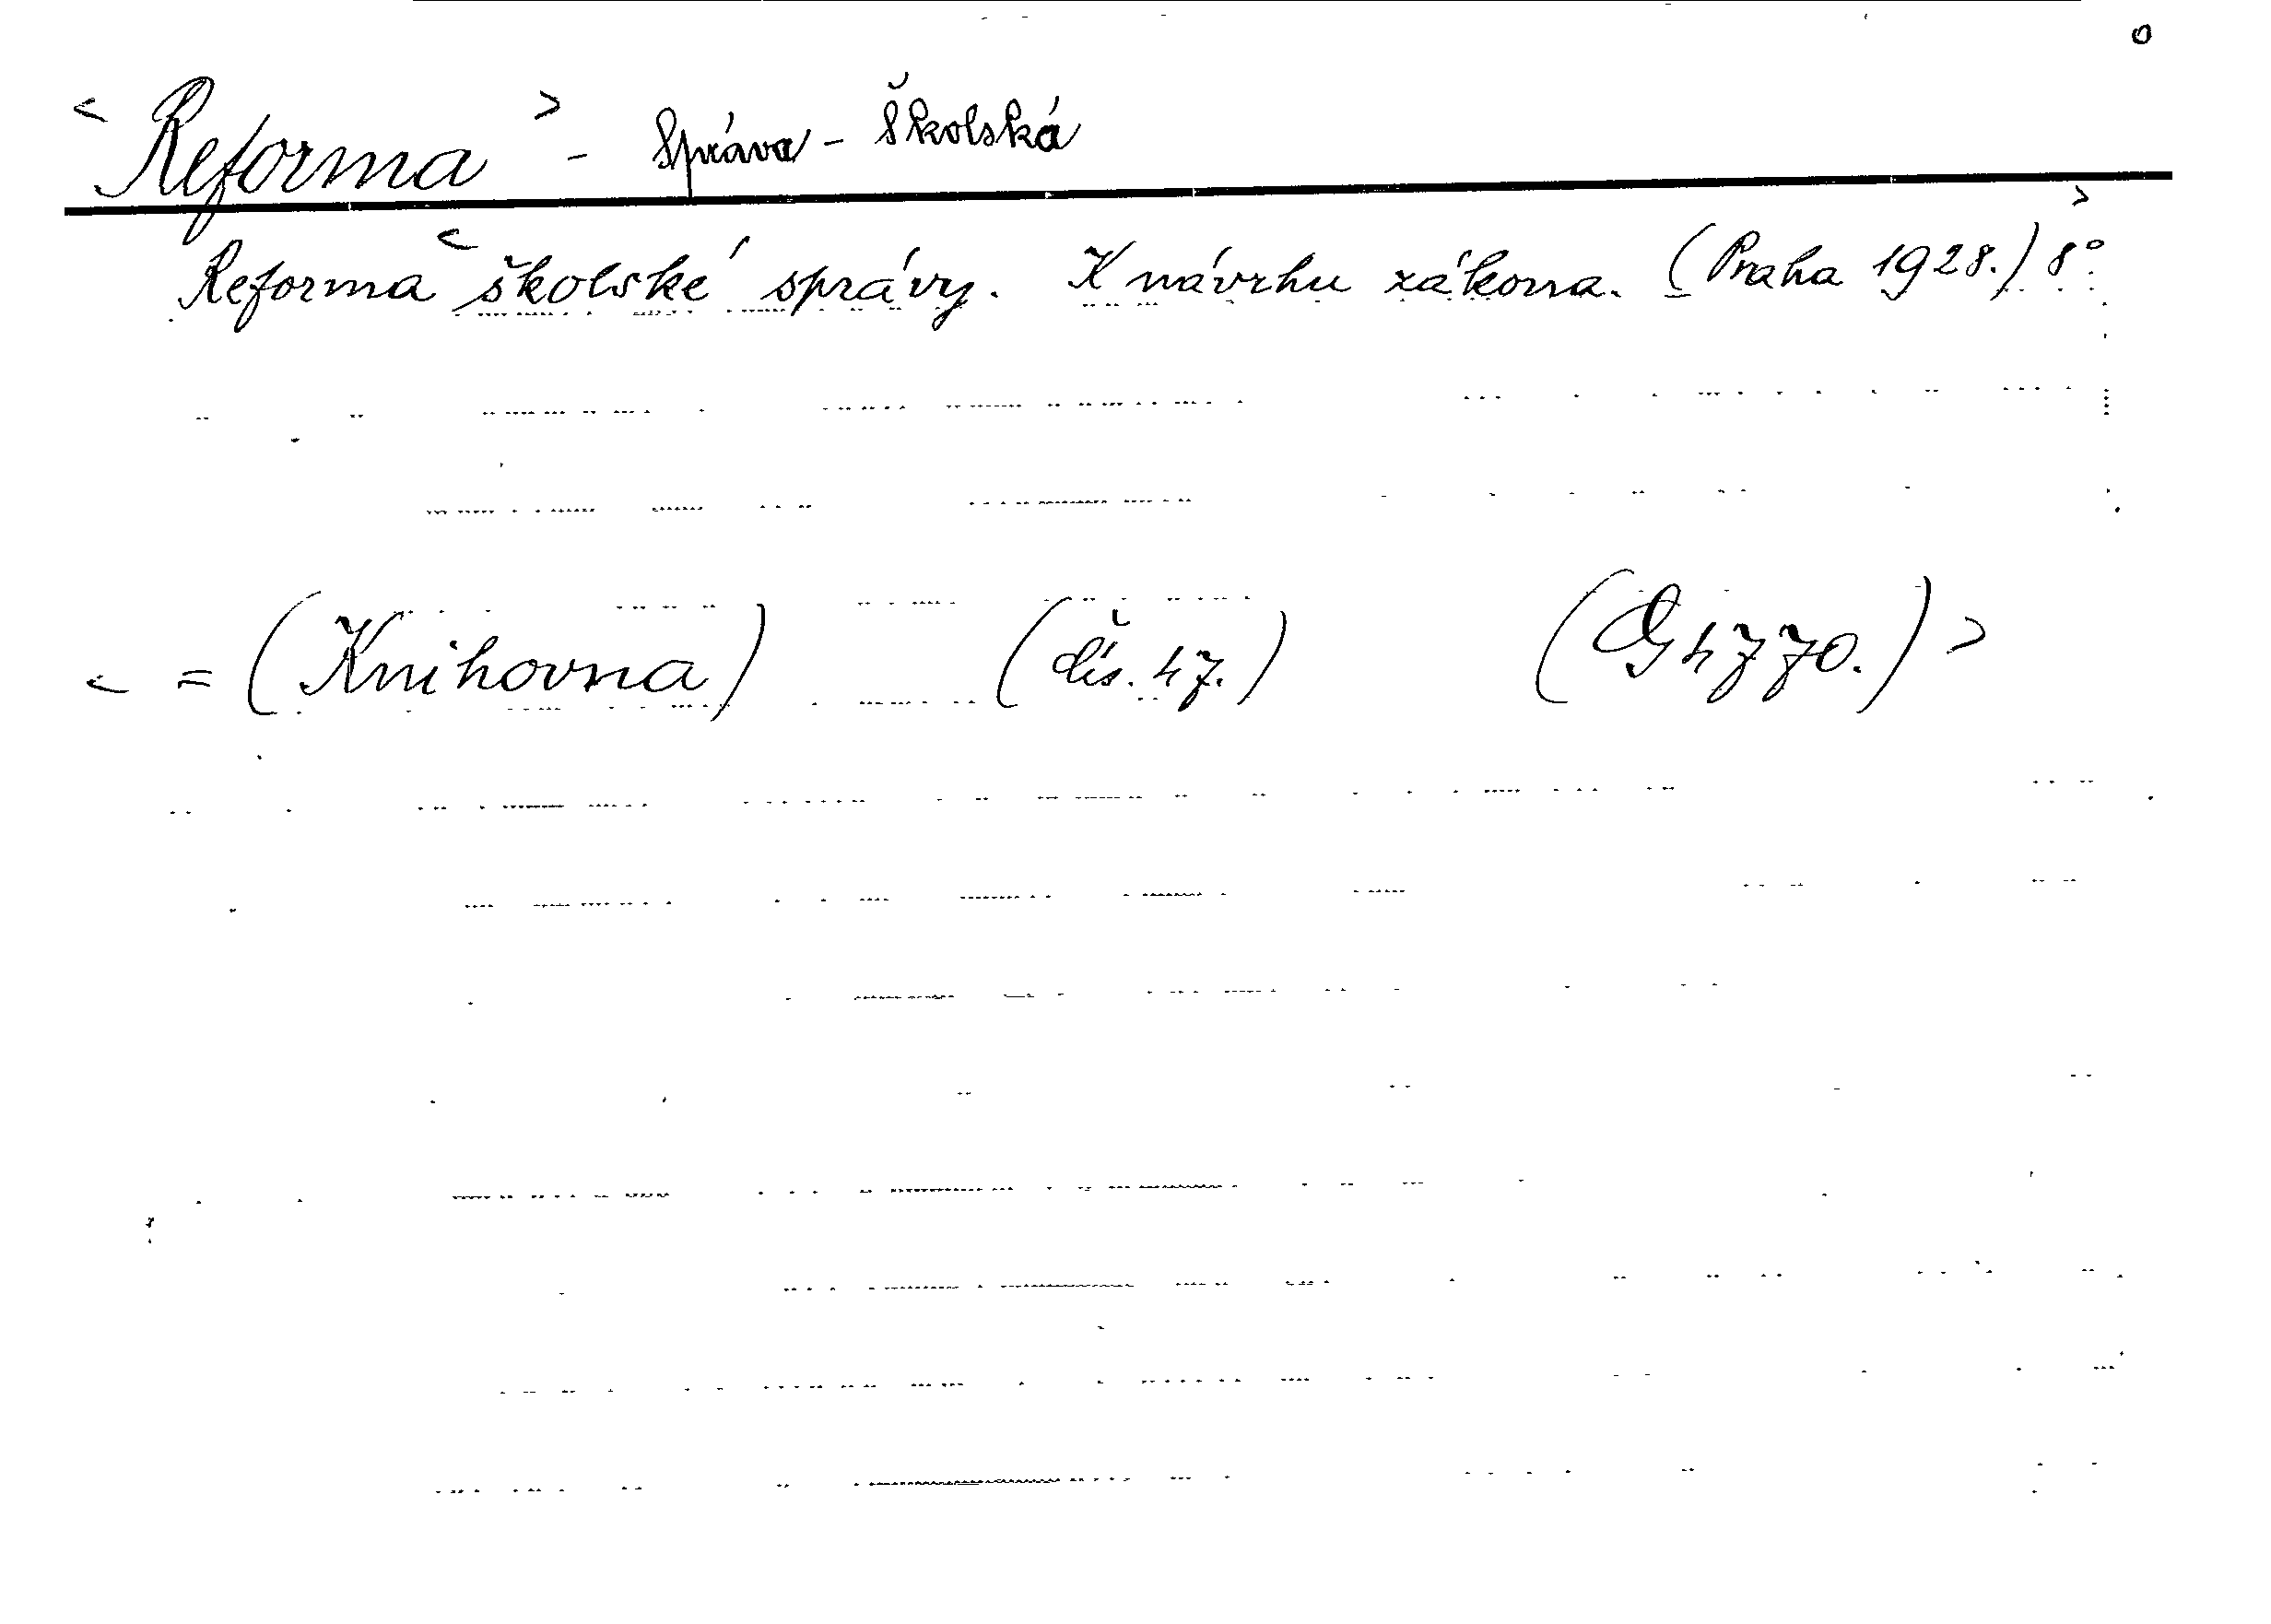 < Reforma > - Správa - školská
Reforma < školské správy. K návrhu zákona. (Praha 1928.) 8°. >
< = (Knihovna) (čís. 47.) (G 4770.) >